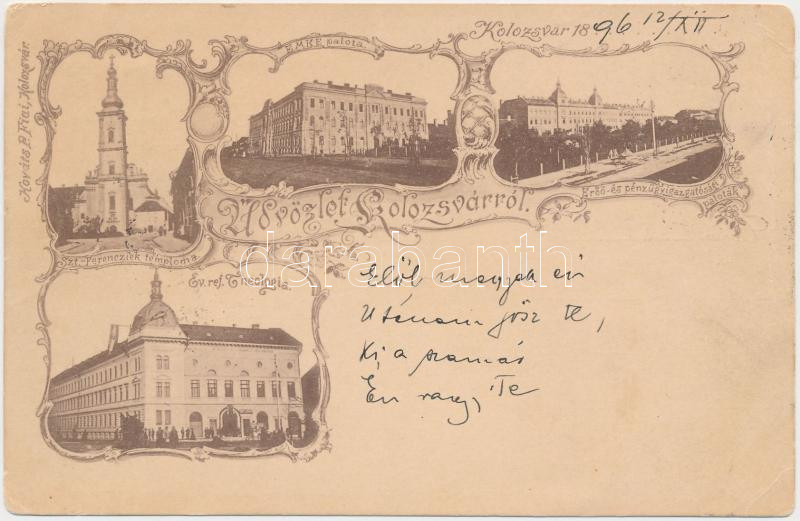 Kolozsvár 1896 12/XII
EMKE palota
Kováts P. Fiai, Kolozsvár.
Üdvözlet Kolozsvárról.
Erdő-és pénzügyigazgatósági
paloták
Szt-Ferencziek temploma
Ev. ref. Theologia
darabanth
Elől megyek én
Utánam jösz te,
Ki a szamár
Én vagy, Te